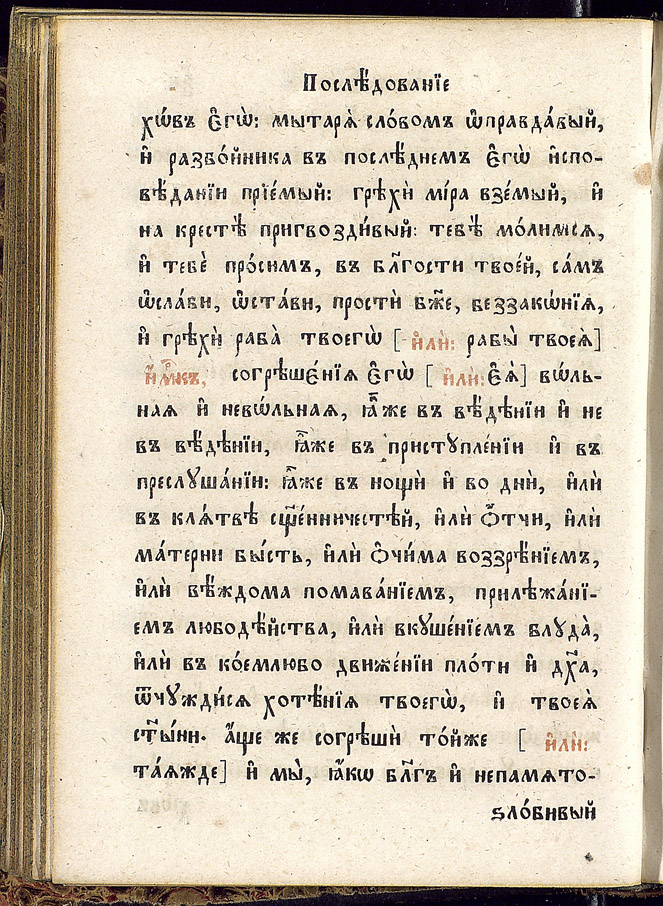 Послѣ́дованїе
хѡ́въ є҆гѡ̀: мытарѧ̀ сло́вомъ ѡ҆правда́вый,
и҆ разбо́йника въ послѣ́днемъ є҆гѡ̀ и҆спо-
вѣ́данїи прїе́мый: грѣхѝ мі́ра взе́мый, и҆
на крестѣ̀ пригвозди́вый: тебѣ̀ мо́лимсѧ,
и҆ тебѐ про́симъ, въ бл҃гости твое́й, са́мъ
ѡ҆сла́ви, ѡ҆ста́ви, простѝ бж҃е, беззакѡ́нїѧ,
и҆ грѣхѝ раба̀ твоегѡ̀ [ и҆лѝ: рабы̀ твоеѧ̀]
и҆́м҃къ, согрѣше́нїѧ є҆гѡ̀ [ и҆лѝ: є҆ѧ̀] вѡ́ль-
наѧ и҆ невѡ́льнаѧ, ꙗ҆̀же въ вѣ́дѣнїи и҆ не
въ вѣ́дѣнїи, ꙗ҆̀же въ пристꙋпле́нїи и҆ въ
преслꙋша́нїи: ꙗ҆̀же въ нощѝ и҆ во днѝ, и҆лѝ
въ клѧ́твѣ сщ҃е́нничестѣй, и҆лѝ ѻ҆́тчи, и҆лѝ
ма́терни бы́сть, и҆лѝ ѻ҆чи́ма воззрѣ́нїемъ,
и҆лѝ вѣ́ждома помава́нїемъ, прилѣжа́нї-
емъ любодѣ́йства, и҆лѝ вкꙋше́нїемъ блꙋда̀,
и҆лѝ въ ко́емлюбо движе́нїи пло́ти и҆ дх҃а,
ѿчꙋжди́сѧ хотѣ́нїѧ твоегѡ̀, и҆ твоеѧ̀
ст҃ы́ни. а҆́ще же согрѣшѝ то́йже [ и҆лѝ:
та́ѧжде] и҆ мы̀, ꙗ҆́кѡ бл҃гъ и҆ непамѧто-
ѕло́бивый